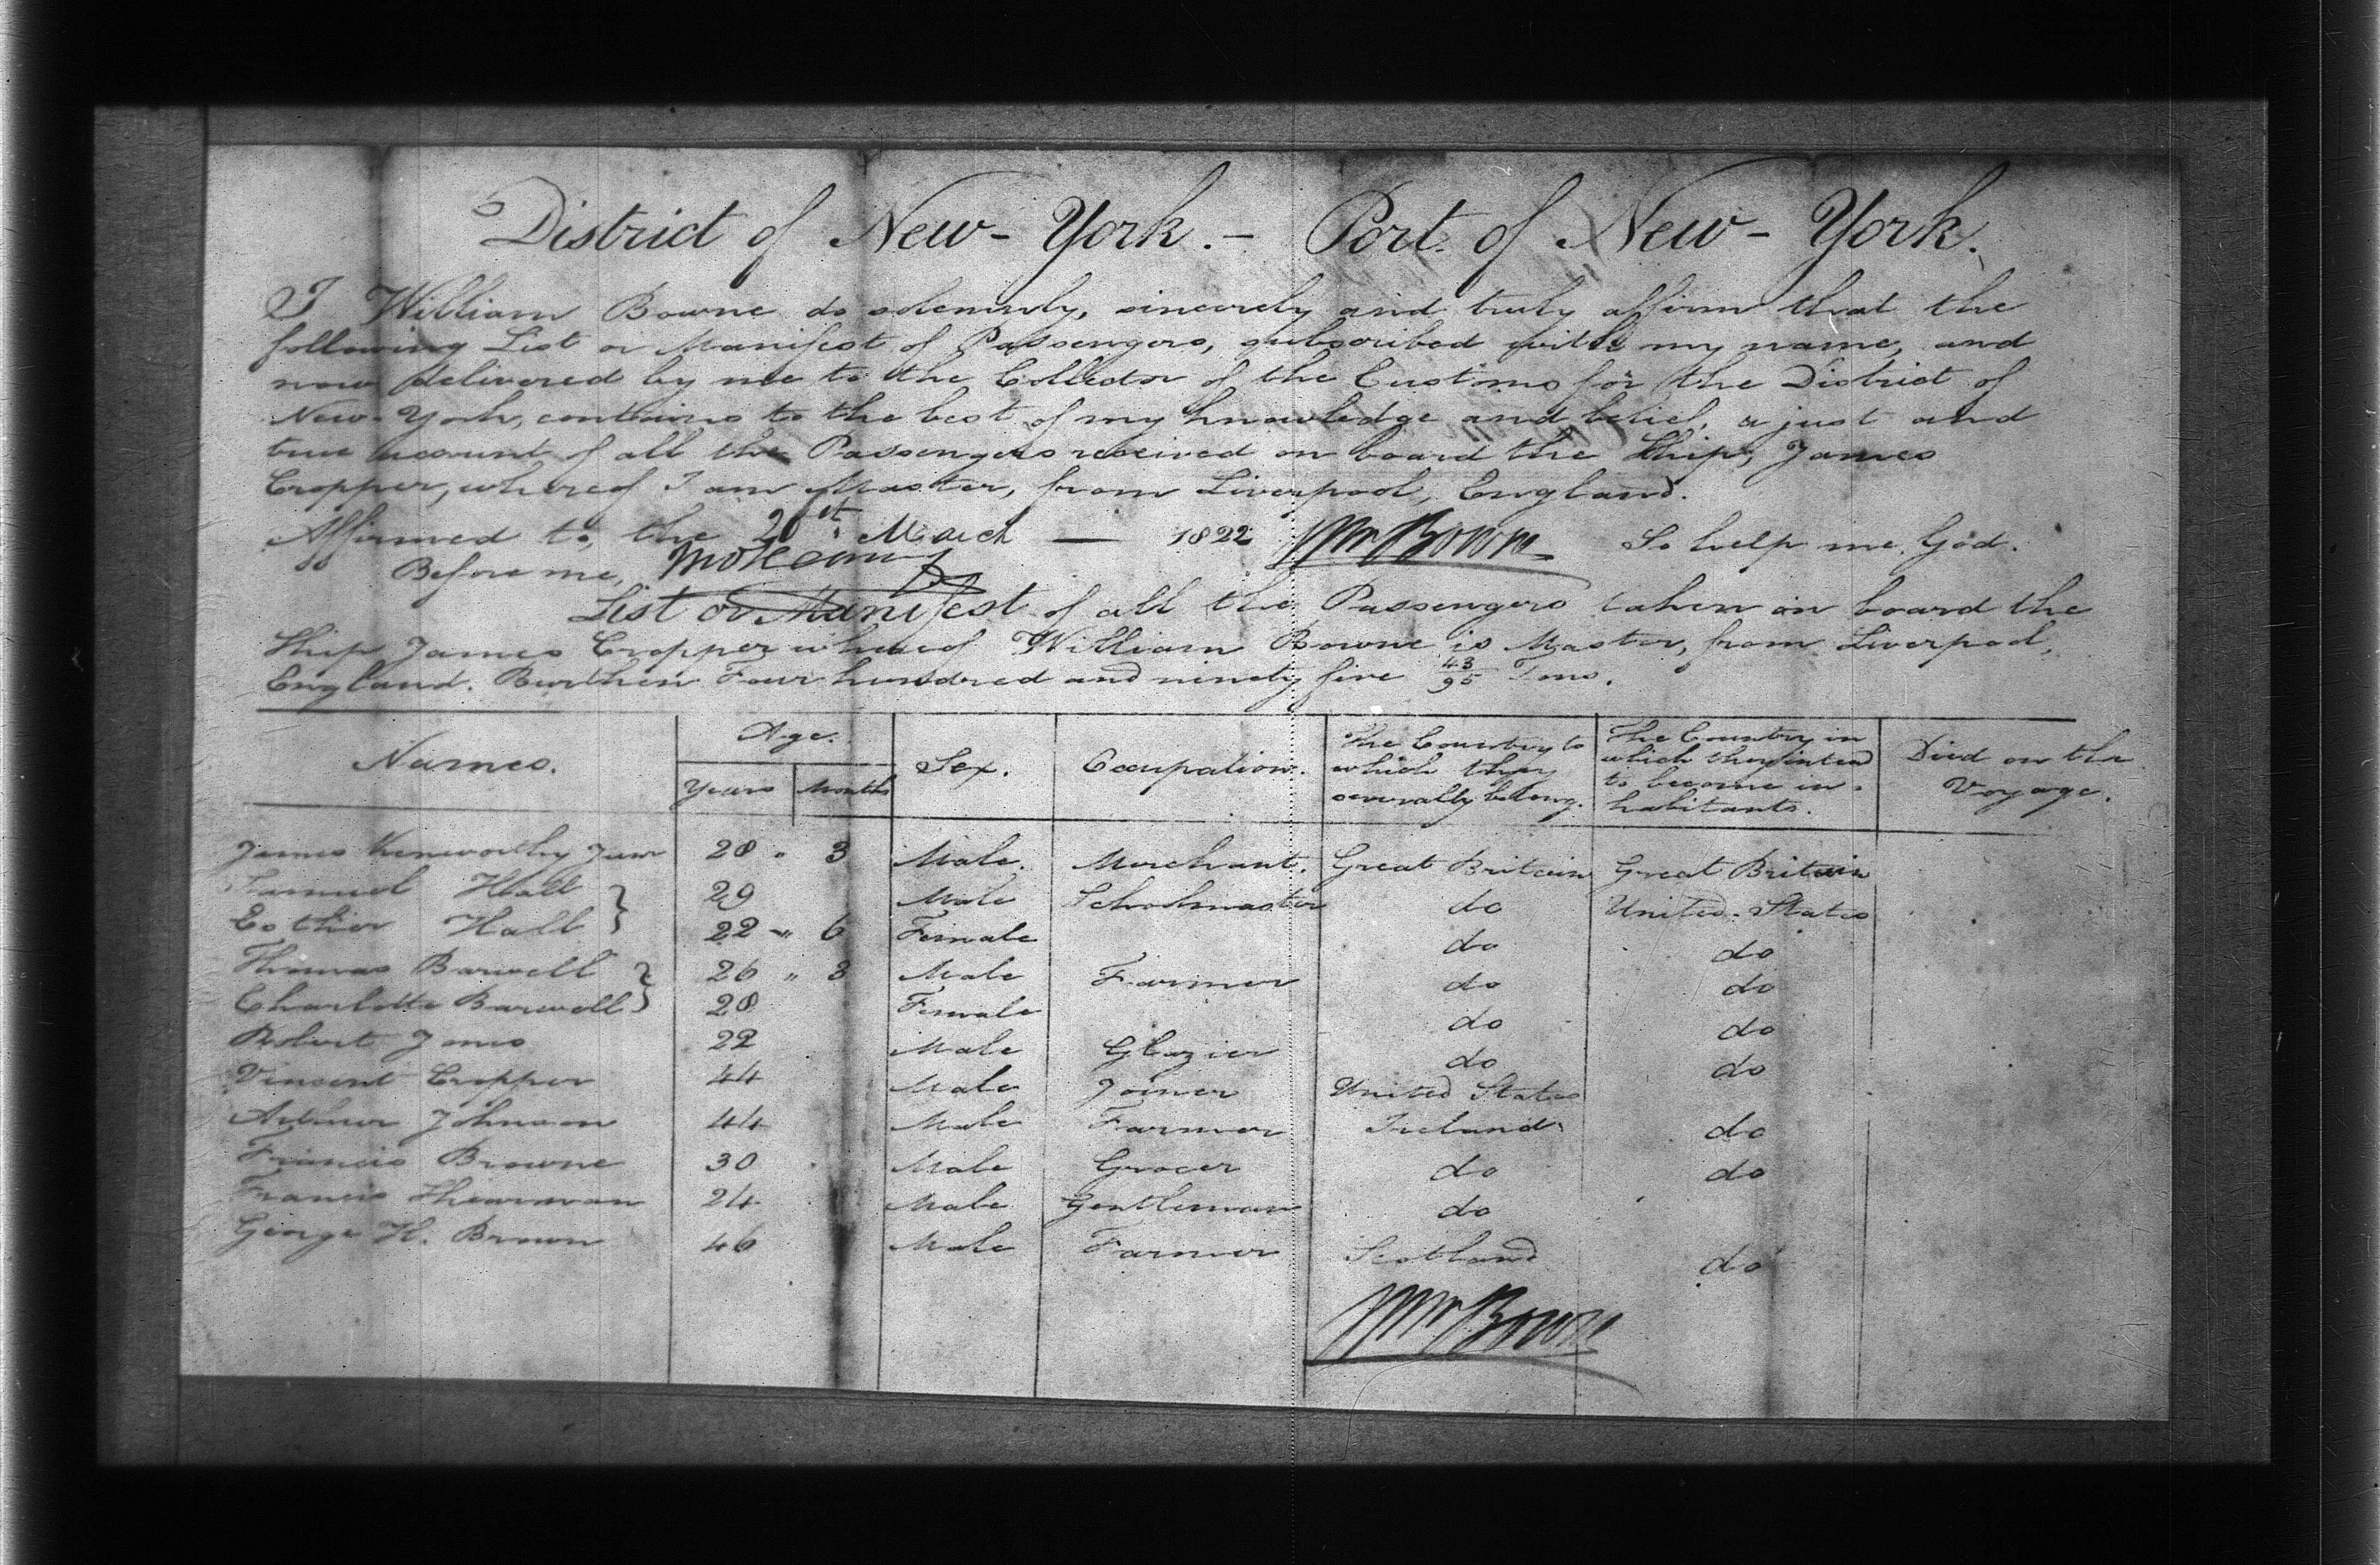 District of New-York.- Port of New-York.
I William Bowne do solemnly, sincerely and truly affirm that the
following List or Manifest of Passengers, subscribed with my name, and
now delivered by me to the Collector of the Customs for the District of
New-York, contains to the best of my knowledge and belief, a just and
true account of all the Passengers received on board the Ship, James
Cropper, whereof I am Master, from Liverpool, England.
Affirmed to, the 20th March — 1822 Wm Bowne So help me God.
Before me,
List or Manifest of all the Passengers taken on board the
Ship James Cropper whereof William Bowne is Master, from Liverpool,
England. Burthen Four hundred and ninety five 43/95 Tons.
Names. Age. Years Months Sex. Occupation. The Country to which they severally belong. The Country in which they intend to become inhabitants. Died on the Voyage.
James Kenworthy Junr 28 " 3 Male. Merchant. Great Britain Great Britain
Samuel Hall 29 Male Schoolmaster do United-States
Esther Hall 22 " 6 Female do do
Thomas Barwell 26 " 3 Male Farmer do do
Charlotte Barwell 28 Female do do
Robert Jones 22 Male Glazier do do
Vincent Cropper 44 Male Joiner United States
Arthur Johnson 44 Male Farmer Ireland do
Francis Browne 30 Male Grocer do do
Francis 24 Male Gentleman do
George H. Brown 46 Male Farmer Scotland do
Wm Bowne